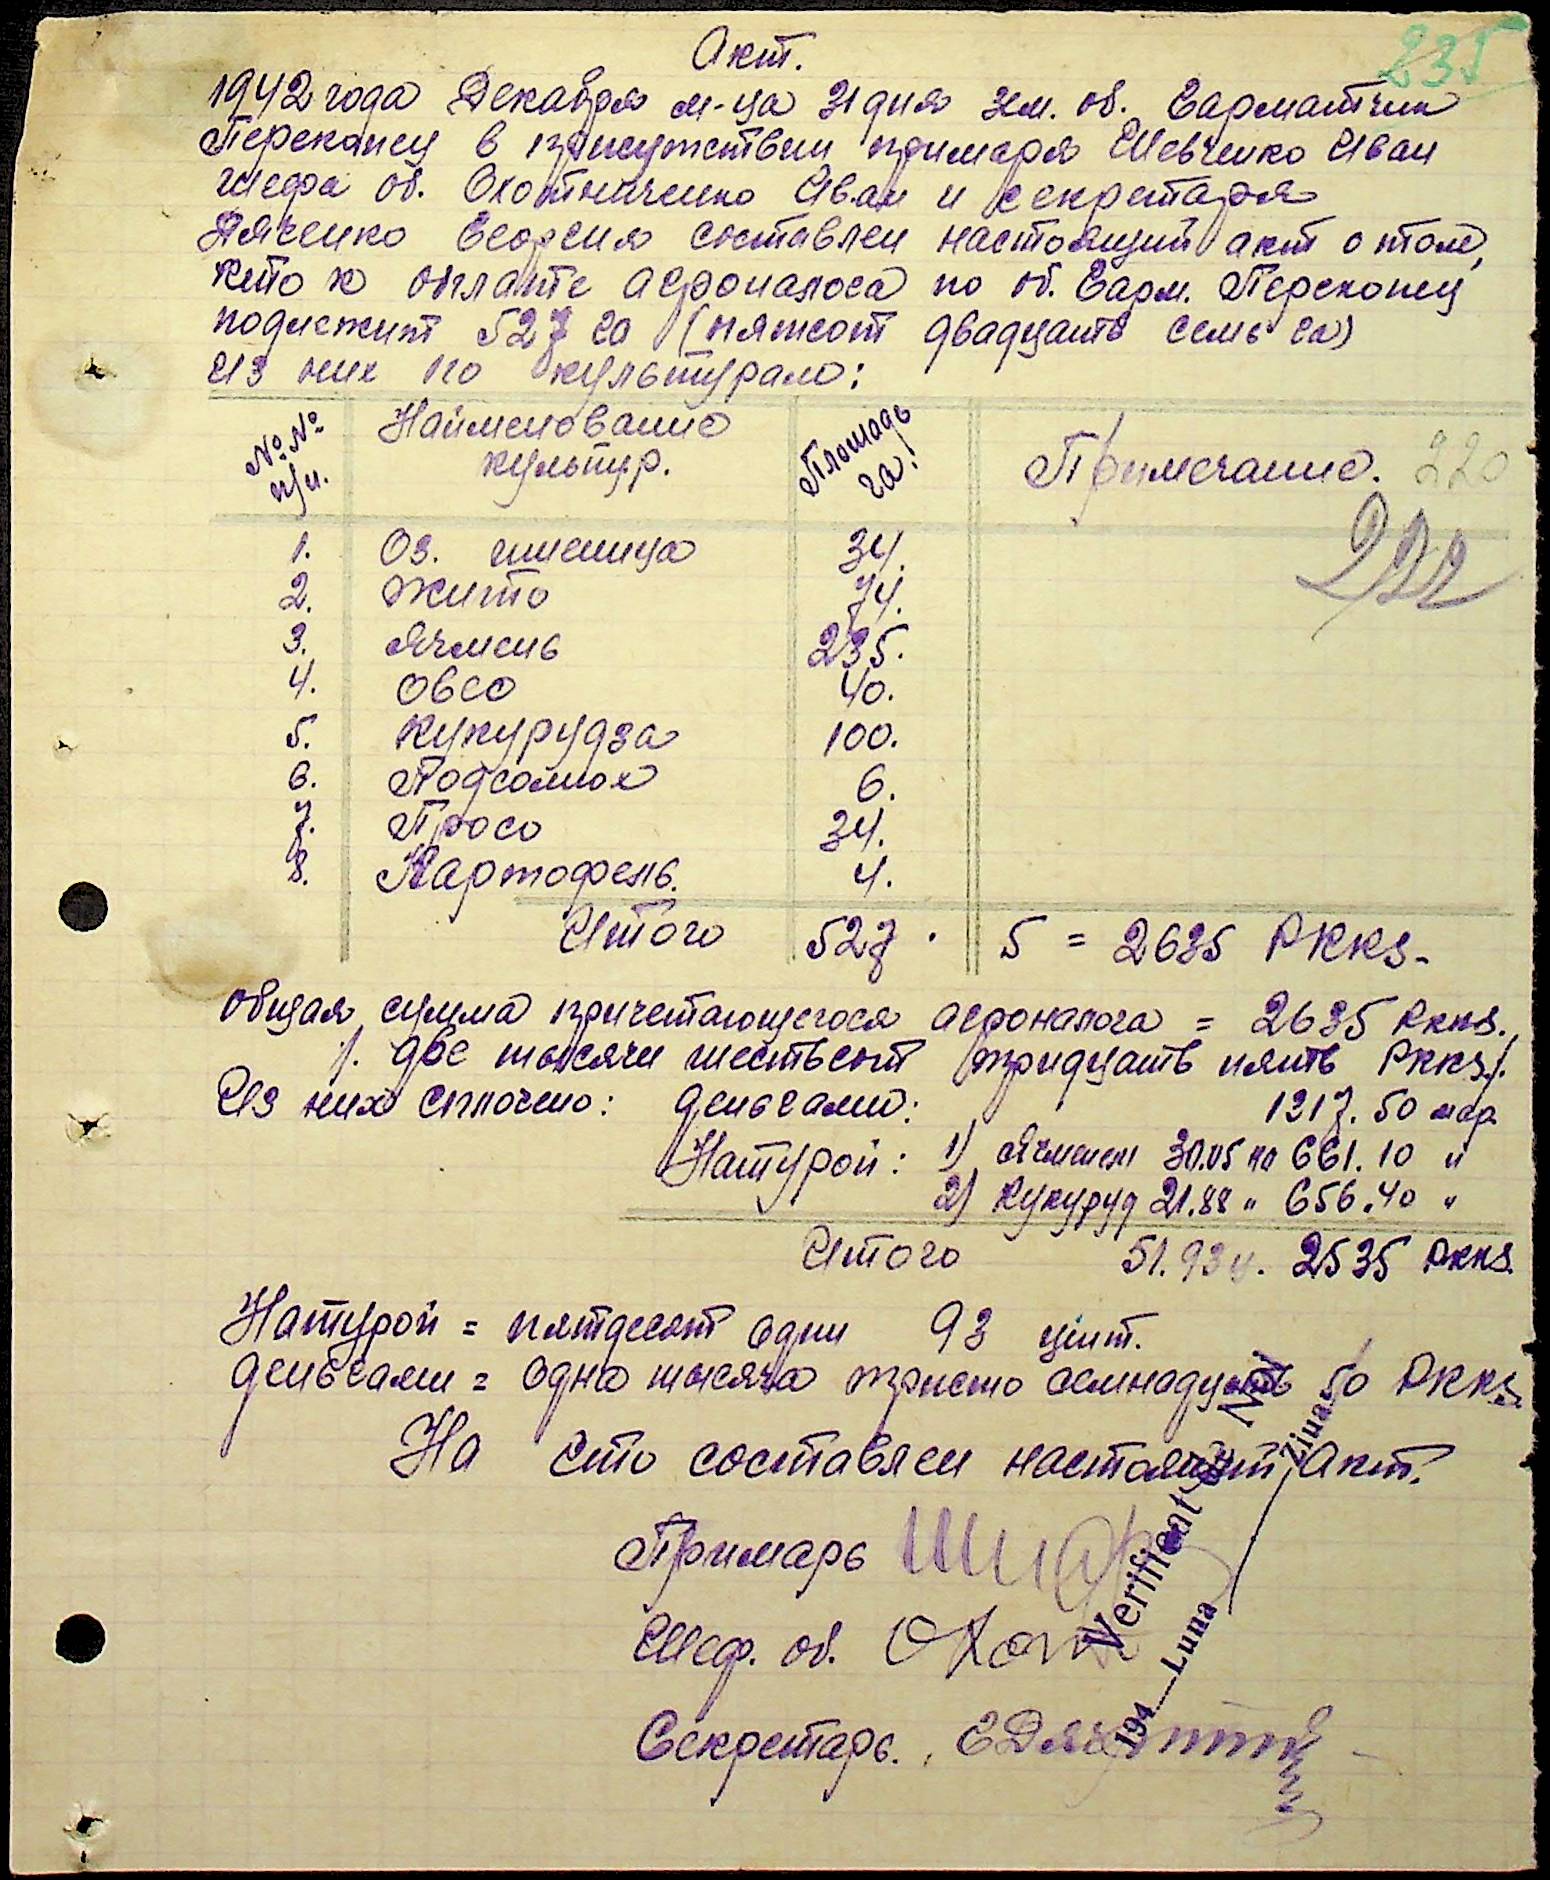 235
Акт.
1942 года Декабря м-ца 31 дня зем. об. Гарматчик
Перекопец в присутствии примаря Шевченко Иван
шефа об. Охотниченко Иван и секретаря
Дяченко Георгия составлен настоящий акт о том,
что к обглате агроналога по об. Гарм. Перекопец
подлежит 527 га (пятсот двадцать семь га)
Из них по культурам:
№ № п/п. Наименование культур. Площадь га. Примечание. 220
222
1. Оз. пшеница 34.
2. Жито 74.
3. Ячмень 235.
4. Овес 40.
5. Кукурудза 100.
6. Подсолнох 6.
7. Просо 34.
8. Картофель. 4.
Итого 527 · 5 = 2635 РККЗ.
Общая сумма причетающегося агроналога = 2635 Рккз.
/. две тысячи шестьсот тридцать пять РККЗ/.
Из них сплочено: деньгами: 1317. 50 мар
Натурой: 1) Ячменем 30.05 на 661. 10 "
2) Кукуруд 21.88 " 656.40 "
Итого 51.93 ц. 2535 Рккз.
Натурой = пятдесят один 93 цнт.
деньгами = одна тысяча тристо семнадцать 50 РККЗ.
На сто составлен настоящий Акт.
Примарь
Шеф. об. Охот
Секретарь. ЕДяч
Verificat No.
194__ Luna ____ Ziua